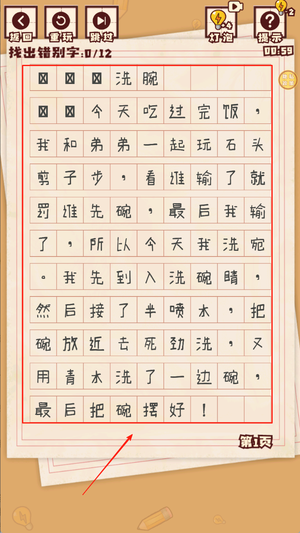 返回 重玩 跳过 灯泡 提示
找出错别字:0/12 00:59
洗腕
今天吃过完饭，
我和弟弟一起玩石头
剪子步，看谁输了就
罚谁先碗，最后我输
了，所以今天我洗宛
。我先到入洗碗晴，
然后接了半喷水，把
碗放近去死劲洗，又
用青水洗了一边碗，
最后把碗摆好！
第1页